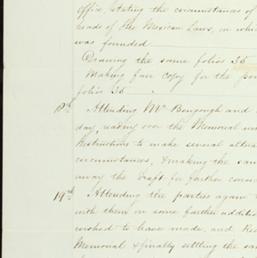 office, stating the circumstances of
heads of the Mexican Laws, on which
was founded
Drawing the same folios 36
Making fair copy for the
folios 36
18th Attending Mr Bengough and
day, reading over the Memorial and
instructions to make several altera
circumstances, & making the same
away the draft for further consid
19th Attending the parties again
with them in some further addition
wished to have made, and
Memorial & finally settling the sa